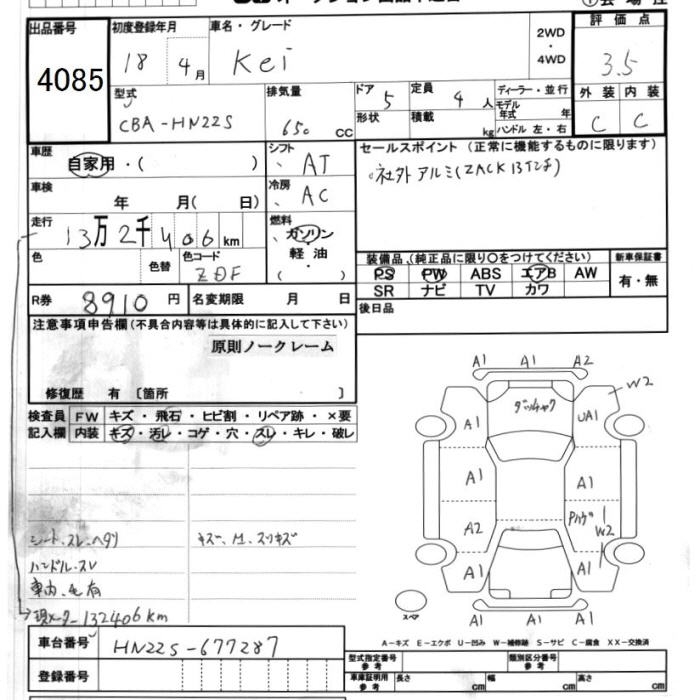 出品番号
4085
初度登録年月
18 4月
車名・グレード
Kei
2WD
・
4WD
評価点
3.5
外装 内装
C C
型式
CBA-HN22S
排気量
650 CC
ドア 5
形状
定員 4 人
積載 kg
ディーラー・並行
モデル年式 年
ハンドル 左・右
車歴
自家用・( )
シフト
AT
車検
年 月( 日)
冷房
AC
走行
13万2千406km
燃料
ガソリン
軽油・
( )
色
色替
色コード
ZDF
R券 8910 円
名変期限 月 日
セールスポイント (正常に機能するものに限ります)
社外アルミ(ZACK 13インチ)
装備品 (純正品に限り○をつけてください)
PS PW ABS エアB AW
SR ナビ TV カワ
新車保証書
有・無
後日品
注意事項申告欄(不具合内容等は具体的に記入して下さい)
原則ノークレーム
修復歴 有 〔箇所 〕
検査員記入欄
FW キズ・飛石・ヒビ割・リペア跡・×要
内装 キズ・汚レ・コゲ・穴・スレ・キレ・破レ
シート、スレ、ヘタリ
キズ、スリキズ
ハンドル、スレ
車内、毛有
現メーター132406km
A1 A1 A2
W2
ダッシュ
A1
UA1
A1
A1
A2
W2
A1
A1
A1 A1 A1
スペア
A-キズ E-エクボ U-凹み W-補修跡 S-サビ C-腐食 XX-交換済
車台番号 HN22S-677287
登録番号
型式指定番号
参考
類別区分番号
参考
車庫証明用
参考
長さ cm 幅 cm 高さ cm